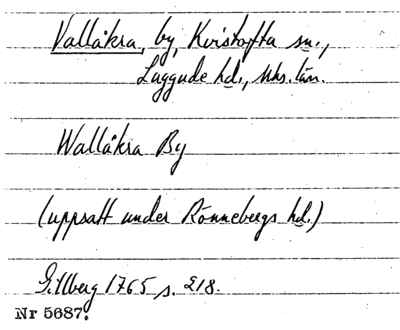 Vallåkra, by, Kvistofta sn.,
Luggude hd., Mhs. län.
Wallåkra By
(uppsatt under Rönnebergs hd.)
Gillberg 1765 s. 218.
Nr 5687.